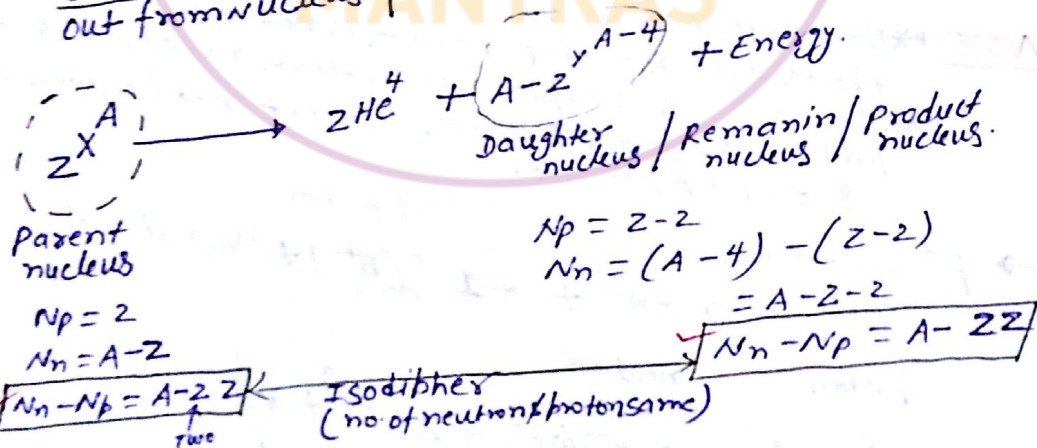 MANTRAS
out from Nucleus
zX^A → 2He^4 + A-2Y^A-4 + Energy.
Parent nucleus
Daughter nucleus / Remanin nucleus / Product nucleus.
Np = 2
Nn = A-Z
Nn-Np = A-2 Z
Two
Np = Z-2
Nn = (A-4) - (Z-2)
= A-Z-2
Nn-Np = A- 2Z
Isodipher
(no. of neutron & proton same)